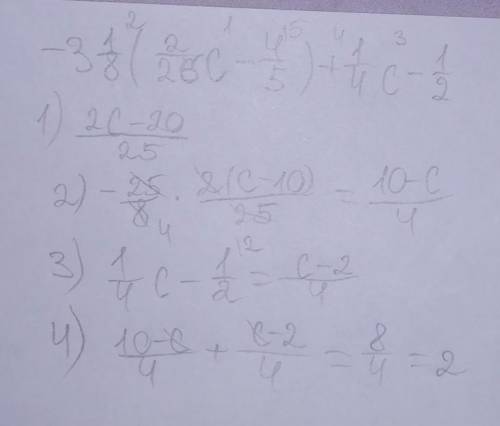 -3 1/8 ²( 2/25 c ¹- 4/5 ⁵) ⁴+ 1/4 c ³- 1/2
1) 2c-20/25
2) - 25/8 4 · 2(c-10)/25 = 10-c/4
3) 1/4 c - 1/2 ² = c-2/4
4) 10-c/4 + c-2/4 = 8/4 = 2